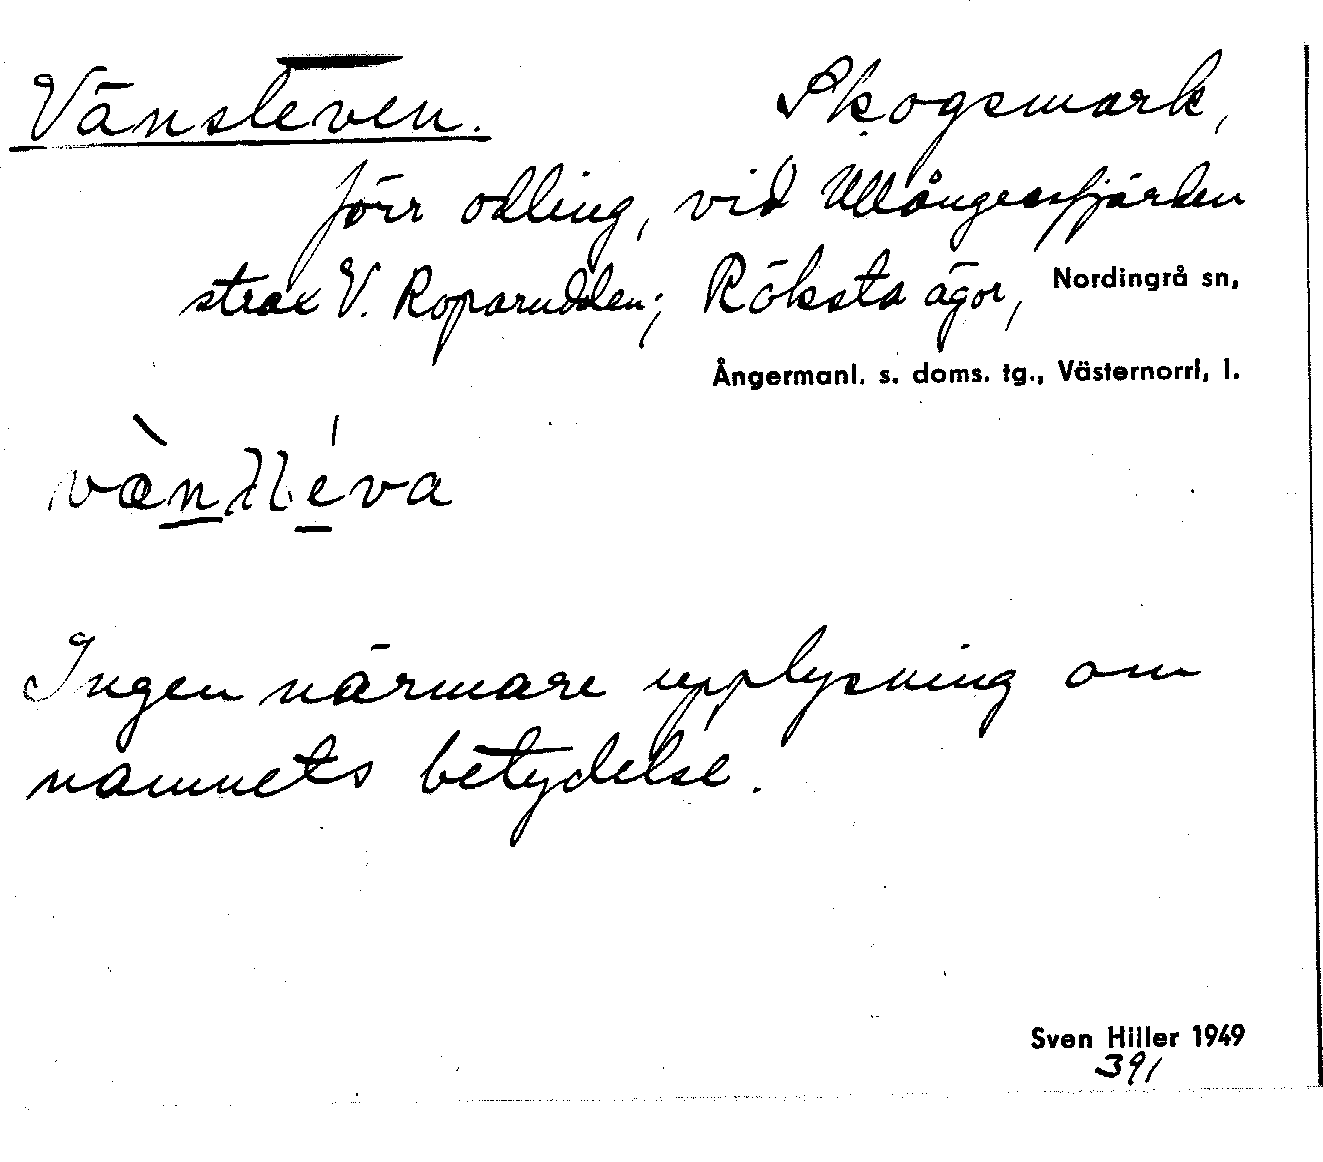 Vänsteven. Skogsmark,
förr odling, vid Ullångersfjärden
strax V. Roparudden; Röksta ägor, Nordingrå sn,
Ångermanl. s. doms. tg., Västernorrl, l.
Ingen närmare upplysning om
namnets betydelse.
Sven Hiller 1949
391